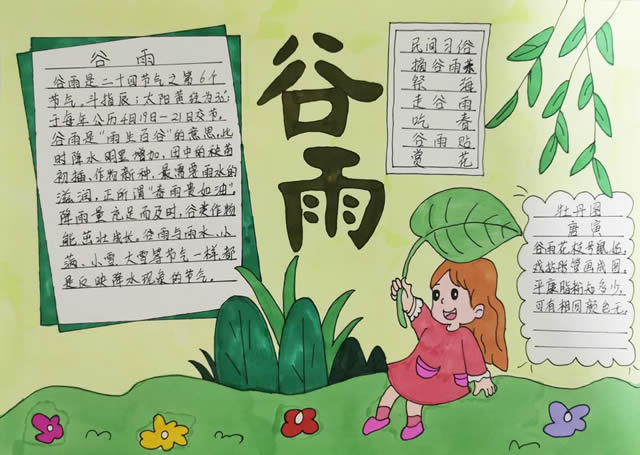 谷雨
谷雨
谷雨是二十四节气之第6个
节气。斗指辰;太阳黄经为30°;
于每年公历4月19日—21日交节。
谷雨是“雨生百谷”的意思,此
时降水明显增加,田中的秧苗
初插、作物新种,最需要雨水的
滋润,正所谓“春雨贵如油”。
降雨量充足而及时,谷类作物
能茁壮成长。谷雨与雨水、小
满、小雪、大雪等节气一样,都
是反映降水现象的节气。
民间习俗
摘谷雨茶
祭海
走谷雨
吃春
谷雨贴
赏花
牡丹图
唐寅
谷雨花枝号鼠姑,
戏拈彤管画成图。
平康脂粉知多少,
可有相同颜色无。